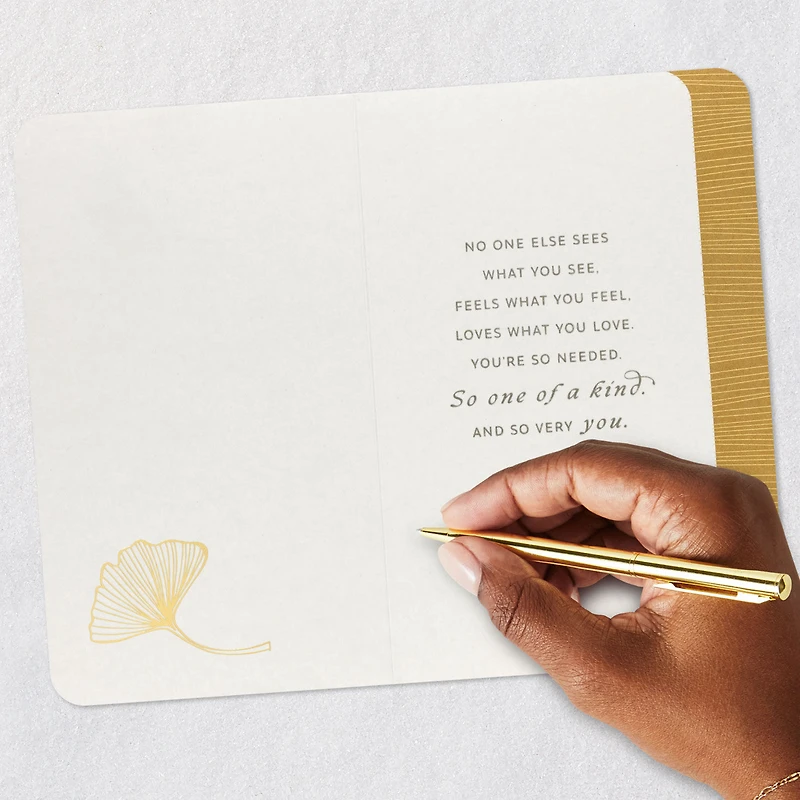 NO ONE ELSE SEES
WHAT YOU SEE,
FEELS WHAT YOU FEEL,
LOVES WHAT YOU LOVE.
YOU'RE SO NEEDED.
So one of a kind.
AND SO VERY you.